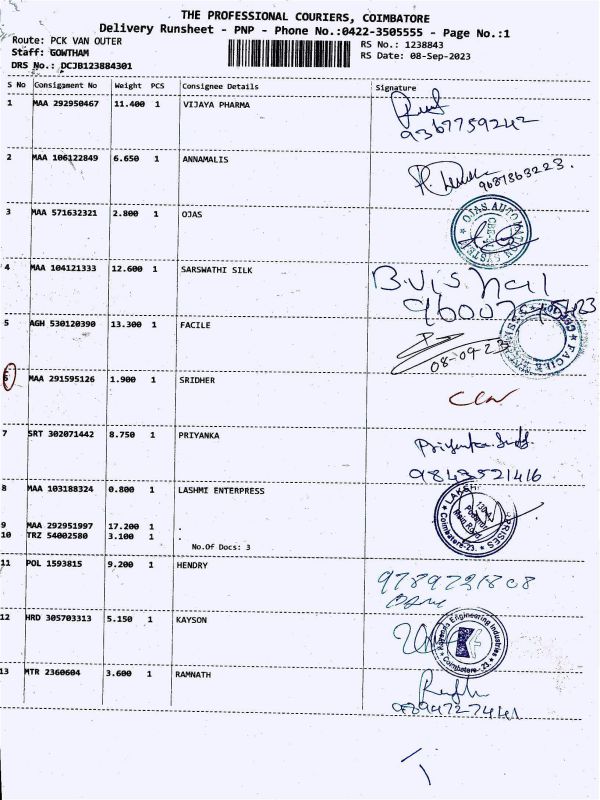 THE PROFESSIONAL COURIERS, COIMBATORE
Delivery Runsheet - PNP - Phone No.:0422-3505555 - Page No.:1
Route: PCK VAN OUTER
RS No.: 1238843
Staff: GOWTHAM
RS Date: 08-Sep-2023
DRS No.: DCJB123884301
S No Consignment No Weight PCS Consignee Details Signature
1 MAA 292950467 11.400 1 VIJAYA PHARMA
9367759242
2 MAA 106122849 6.650 1 ANNAMALIS
9687863223.
3 MAA 571632321 2.800 1 OJAS
OJAS AUTO
SYSTEM
4 MAA 104121333 12.600 1 SARSWATHI SILK
B.Vishal
5 AGH 530120390 13.300 1 FACILE
08-09-23
FACILE
6 MAA 291595126 1.900 1 SRIDHER
7 SRT 302071442 8.750 1 PRIYANKA
Priyanka
9843521416
8 MAA 103188324 0.800 1 LASHMI ENTERPRESS
Coimbatore-23.
9 MAA 292951997 17.200 1 .
10 TRZ 54002580 3.100 1 .
No.Of Docs: 3
11 POL 1593815 9.200 1 HENDRY
9789721808
12 HRD 305703313 5.150 1 KAYSON
Engineering Industries
Coimbatore - 23
13 MTR 2360604 3.600 1 RAMNATH